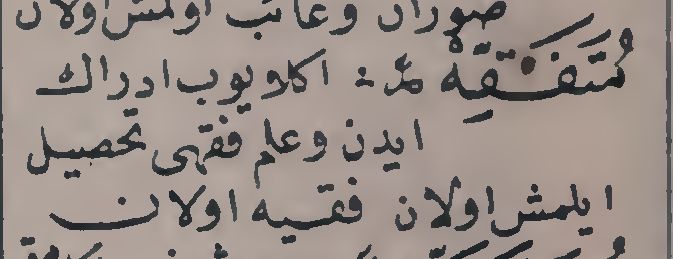 صوران وغائب اولمش اولان
مُتَفَقِّهْ مذ اكلايوب ادراك
ايدن وعلم فقهى تحصيل
ايلمش اولان فقيه اولان